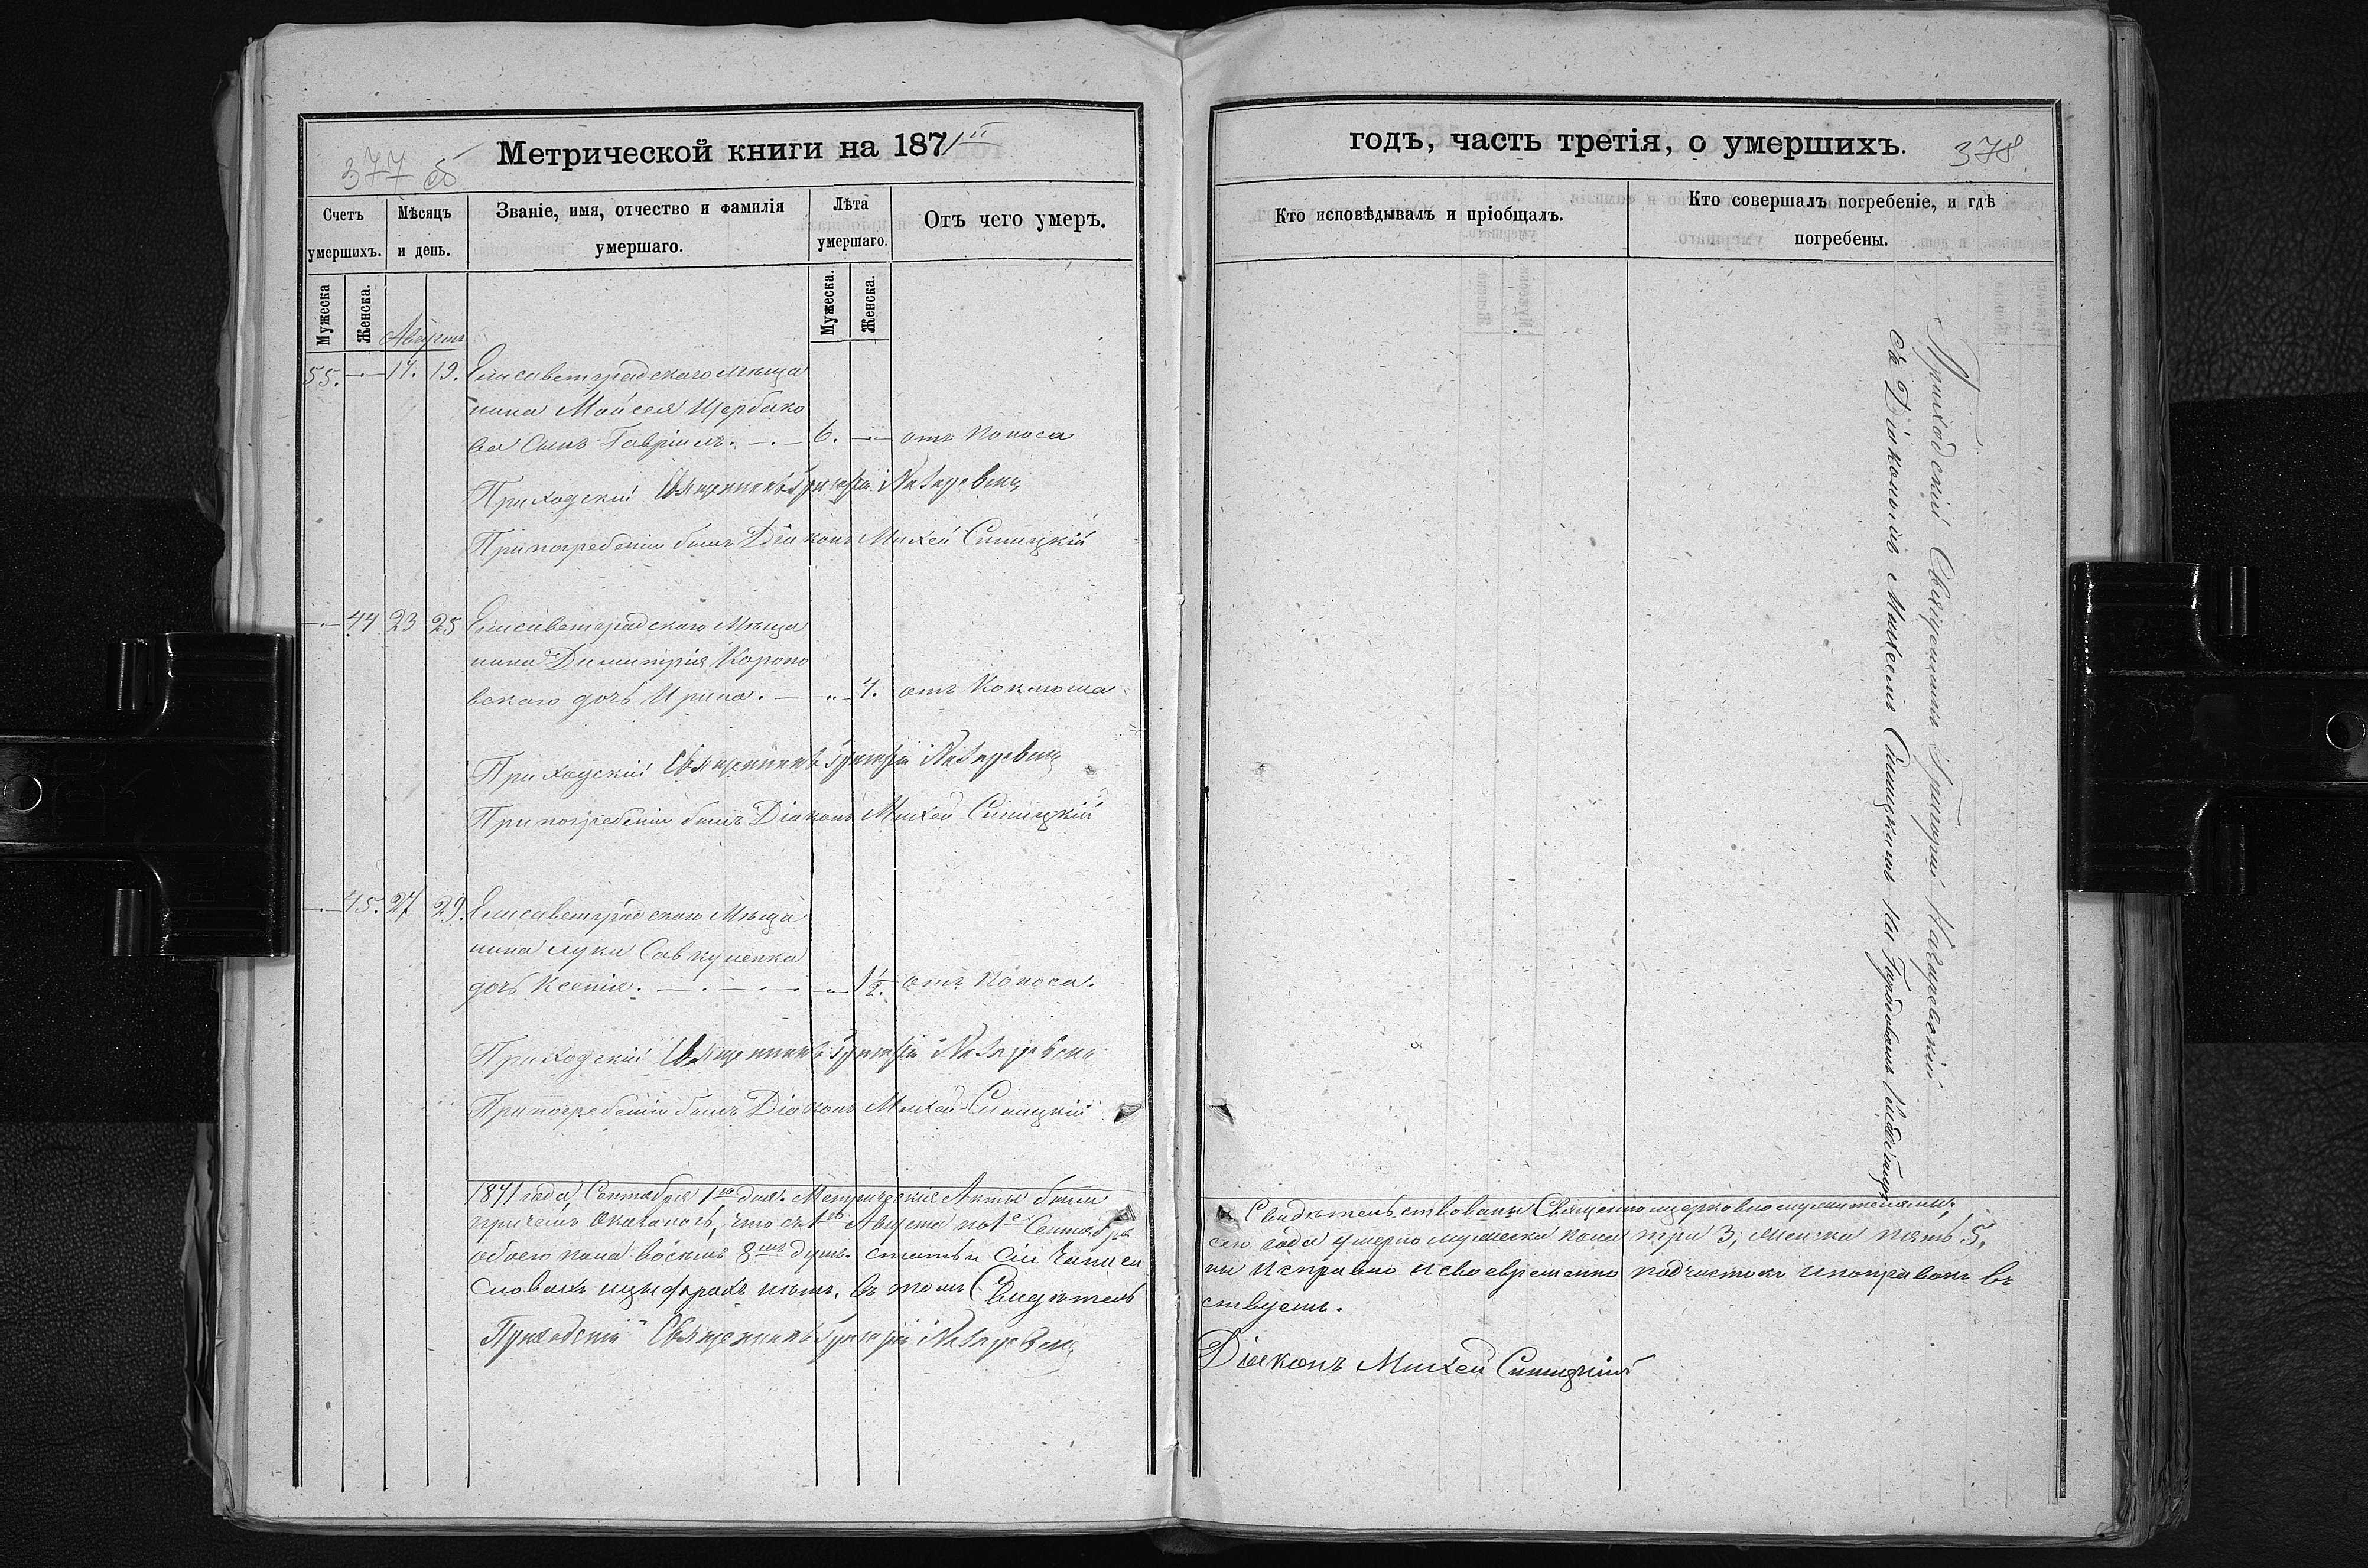 377 об
Метрической книги на 1871й
Счетъ умершихъ.
Мѣсяцъ и день.
Званіе, имя, отчество и фамилія умершаго.
Лѣта умершаго.
Отъ чего умеръ.
Мужеска
Женска.
Августъ
Мужеска.
Женска.
55. — 17. 19. Елисаветградскаго мѣща
нина Мойсея Щербако
ва Сынъ Гавріилъ. — 6. — отъ поноса
Приходскій Священникъ Григорій Назаревскій
При погребеніи былъ Діаконъ Михей Синицкій
— 44 23 25 Елисаветградскаго Мѣща
нина Димитрія Коропо
вскаго дочь Ирина. — 4. отъ Коклюша
Приходскій Священникъ Григорій Назаревскій
При погребеніи былъ Діаконъ Михей Синицкій
— 45. 27 29. Елисаветградскаго Мѣща
нина Луки Савкуненка
дочь Ксенія. — 1½. отъ Поноса.
Приходскій Священникъ Григорій Назаревскій
При погребеніи былъ Діаконъ Михей Синицкій
1871 года, Сентября 1го дня. Метрическіе Акты были
при чемъ Оказалось, что съ 1го Августа по 1е Сентября
обоего пола восемь 8мь душъ. статьи Сіи Записа
Словахъ и цыфрахъ нѣтъ. въ томъ Свидѣтель
Приходскій Священникъ Григорій Назаревскій
годъ, часть третія, о умершихъ.
378
Кто исповѣдывалъ и пріобщалъ.
Кто совершалъ погребеніе, и гдѣ погребены.
Приходскій Священникъ Григорій Назаревскій
съ Діакономъ Михеемъ Синицкимъ на Городовомъ Кладбищѣ
Свидѣтельствованы Священноцерковнослужителями;
сего года умерло мужеска пола три 3, женска пять 5.
ны исправно и своевременно подчистокъ и поправокъ въ
ствуемъ.
Діаконъ Михей Синицкій